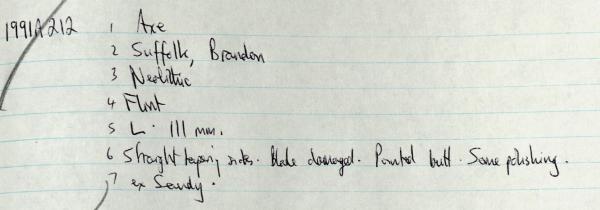 1991A212 1 Axe
2 Suffolk, Brandon
3 Neolithic
4 Flint
5 L. 111 mm.
6 Straight tapering sides. Blade damaged. Pointed butt. Some polishing.
7 ex Sendy.